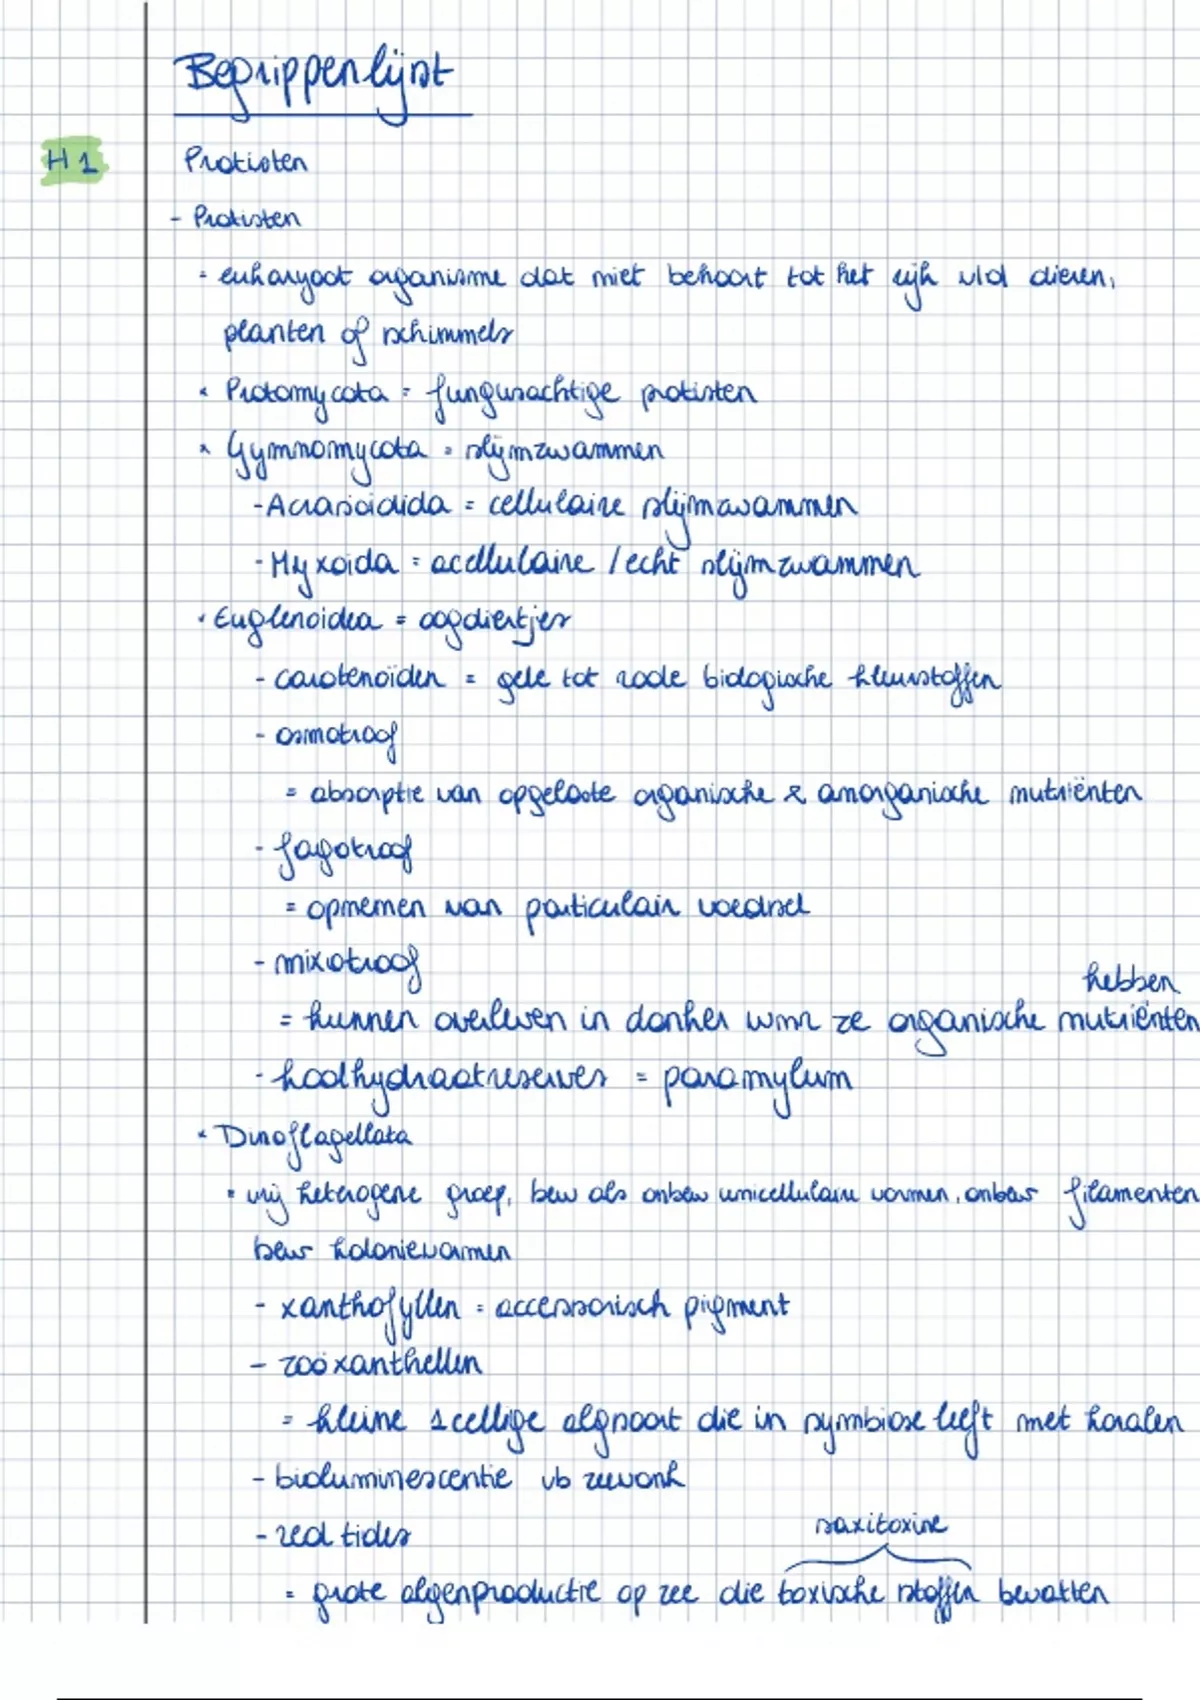 Begrippenlijst
H1 Protisten
- Protisten
= eukaryoot organisme dat niet behoort tot het rijk v/d dieren,
planten of schimmels
* Protomycota = fungusachtige protisten
* Gymnomycota = slijmzwammen
- Acrasioidida = cellulaire slijmzwammen
- Myxoida = acellulaire / echt slijmzwammen
* Euglenoidea = oogdiertjes
- carotenoïden = gele tot rode biologische kleurstoffen
- osmotroof
= absorptie van opgeloste organische & anorganische nutriënten
- fagotroof
= opnemen van particulair voedsel
- mixotroof
hebben
= kunnen overleven in donker wnr ze organische nutriënten
- koolhydraatreserves = paramylum
* Dinoflagellata
= vrij heterogene groep, bew als onbew unicellulaire vormen, onbew filamenten
bew kolonievormen
- xanthofyllen = accessorisch pigment
- zoöxanthellen
= kleine 1cellige algsoort die in symbiose leeft met koralen
- bioluminescentie vb zeevonk
- red tides
saxitoxine
= grote algenproductie op zee die toxische stoffen bevatten